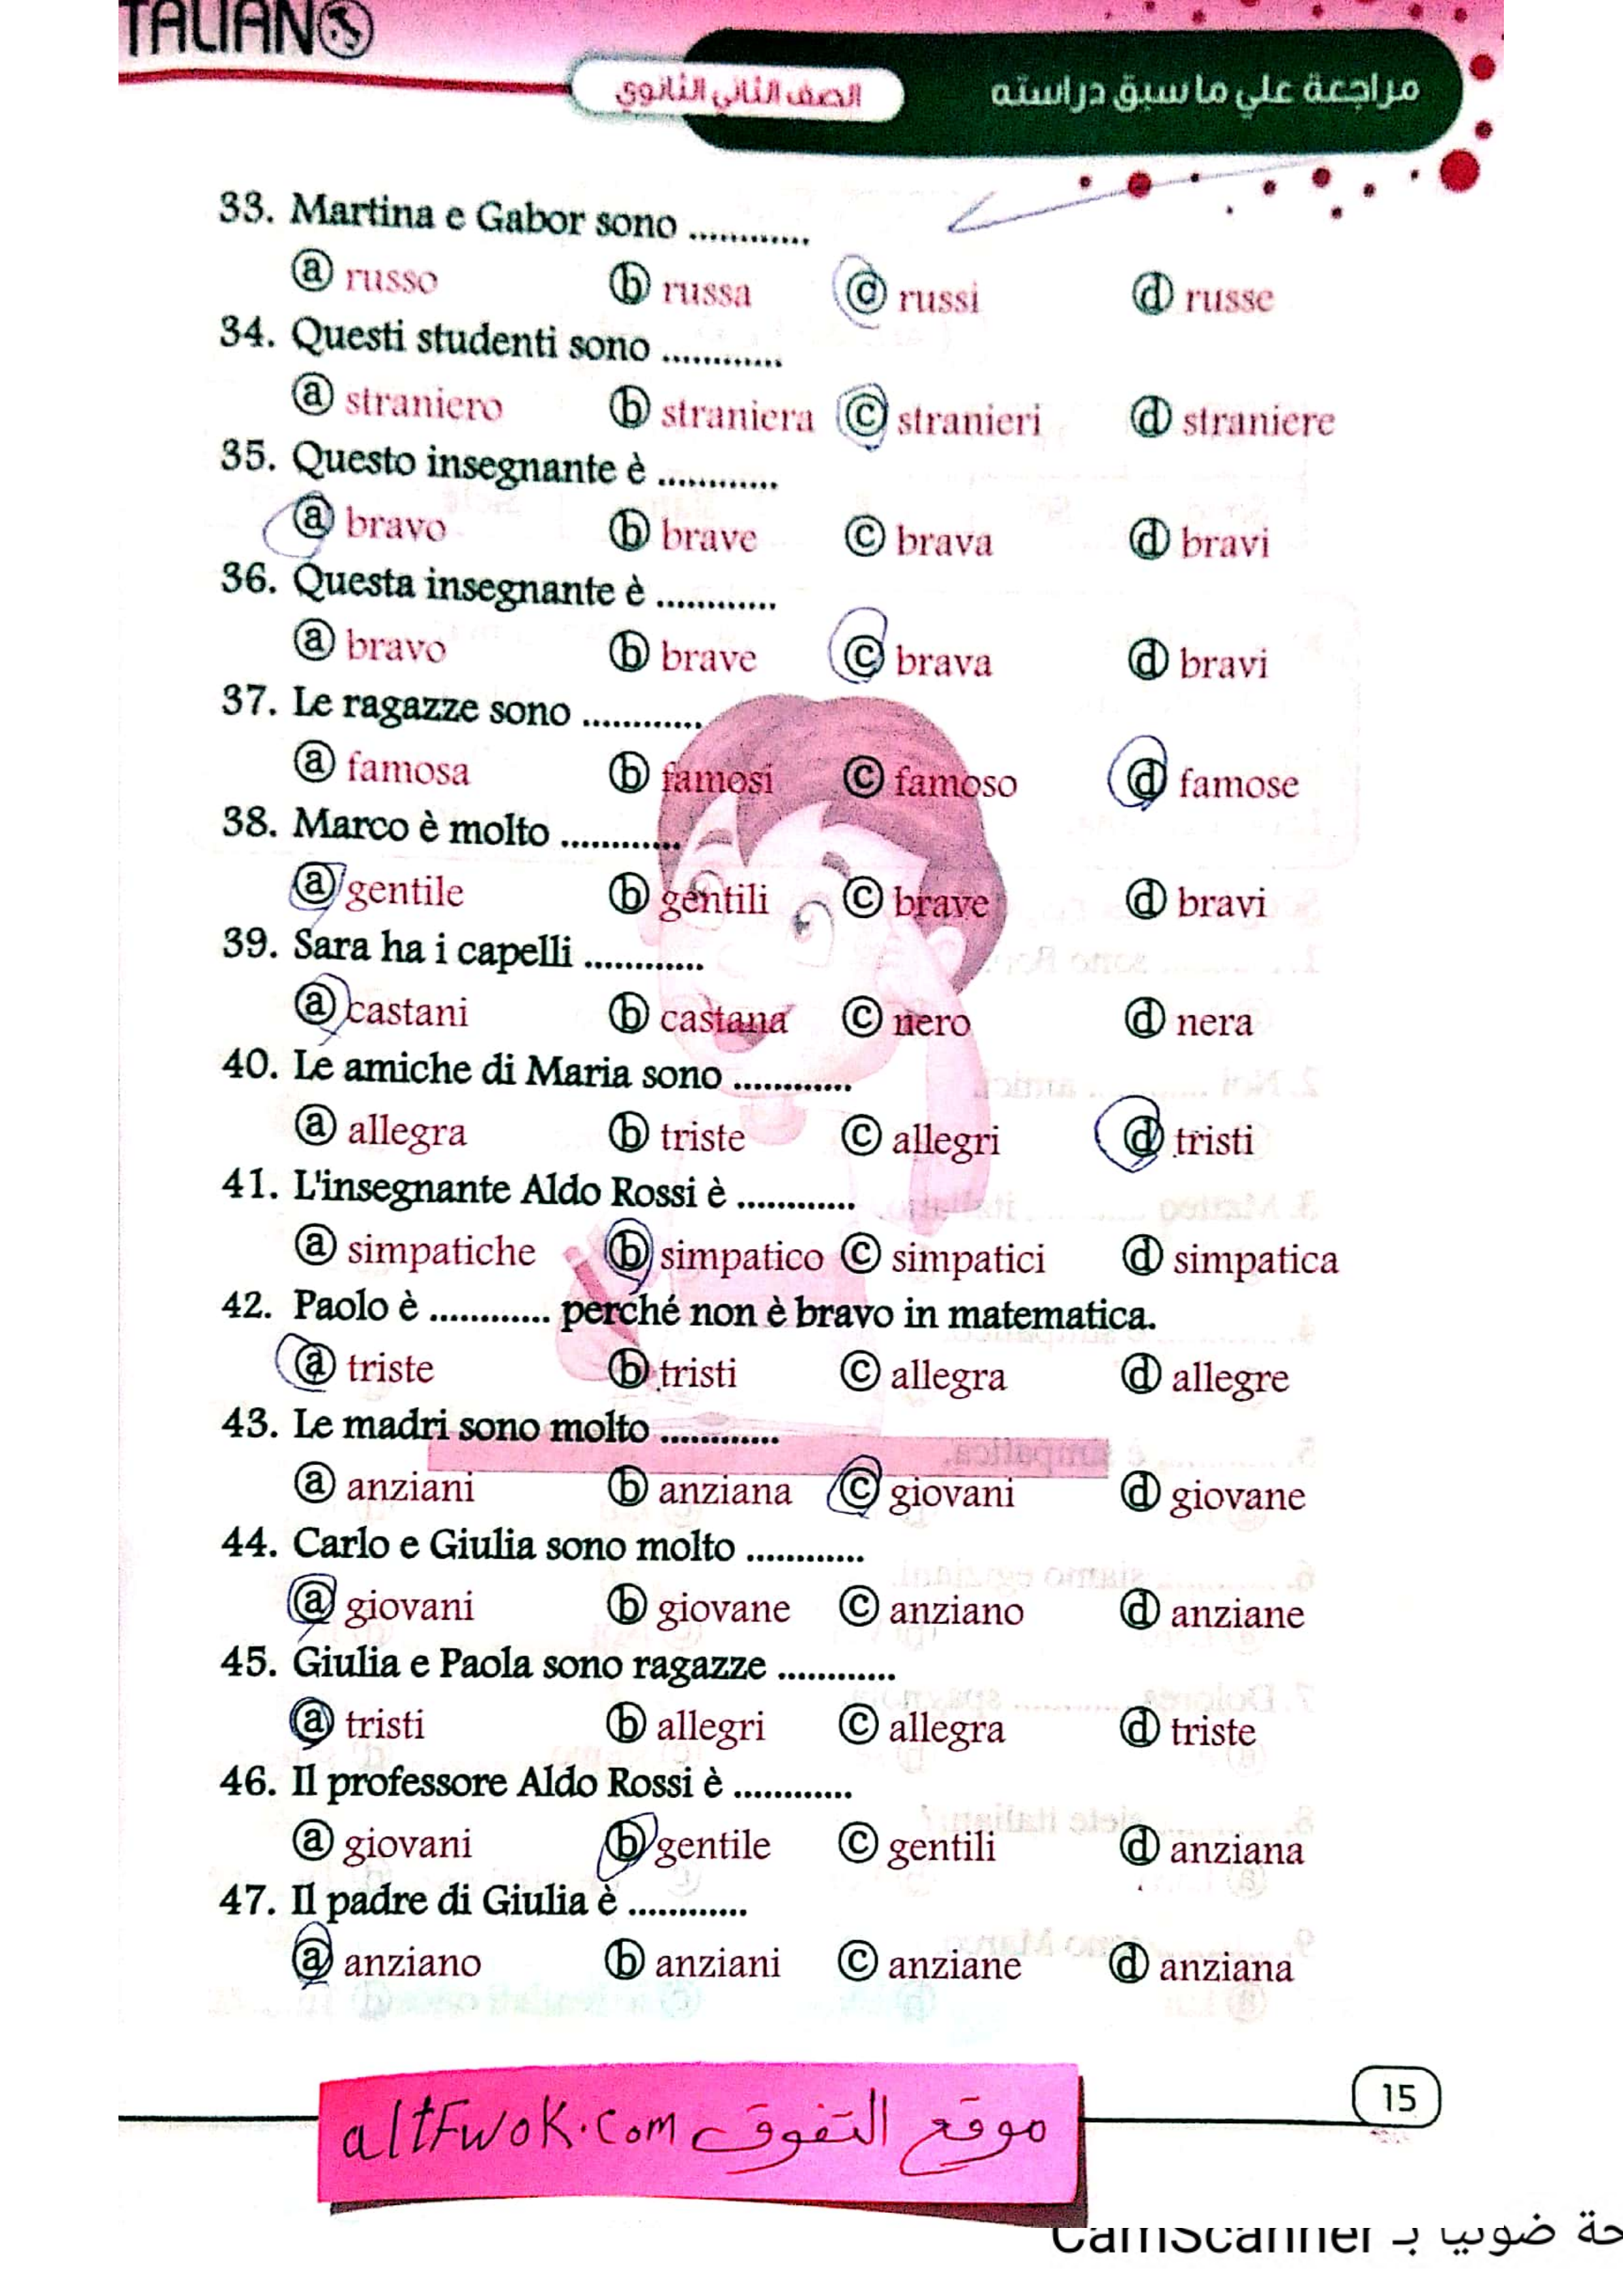 ITALIANO
الصف الثاني الثانوي
مراجعة علي ما سبق دراسته
33. Martina e Gabor sono ............
ⓐ russo ⓑ russa ⓒ russi ⓓ russe
34. Questi studenti sono ............
ⓐ straniero ⓑ straniera ⓒ stranieri ⓓ straniere
35. Questo insegnante è ............
ⓐ bravo ⓑ brave ⓒ brava ⓓ bravi
36. Questa insegnante è ............
ⓐ bravo ⓑ brave ⓒ brava ⓓ bravi
37. Le ragazze sono ............
ⓐ famosa ⓑ famosi ⓒ famoso ⓓ famose
38. Marco è molto ............
ⓐ gentile ⓑ gentili ⓒ brave ⓓ bravi
39. Sara ha i capelli ............
ⓐ castani ⓑ castana ⓒ nero ⓓ nera
40. Le amiche di Maria sono ............
ⓐ allegra ⓑ triste ⓒ allegri ⓓ tristi
41. L'insegnante Aldo Rossi è ............
ⓐ simpatiche ⓑ simpatico ⓒ simpatici ⓓ simpatica
42. Paolo è ............ perché non è bravo in matematica.
ⓐ triste ⓑ tristi ⓒ allegra ⓓ allegre
43. Le madri sono molto ............
ⓐ anziani ⓑ anziana ⓒ giovani ⓓ giovane
44. Carlo e Giulia sono molto ............
ⓐ giovani ⓑ giovane ⓒ anziano ⓓ anziane
45. Giulia e Paola sono ragazze ............
ⓐ tristi ⓑ allegri ⓒ allegra ⓓ triste
46. Il professore Aldo Rossi è ............
ⓐ giovani ⓑ gentile ⓒ gentili ⓓ anziana
47. Il padre di Giulia è ............
ⓐ anziano ⓑ anziani ⓒ anziane ⓓ anziana
15
موقع التفوق altFwok.com
ضوئيا بـ CamScanner